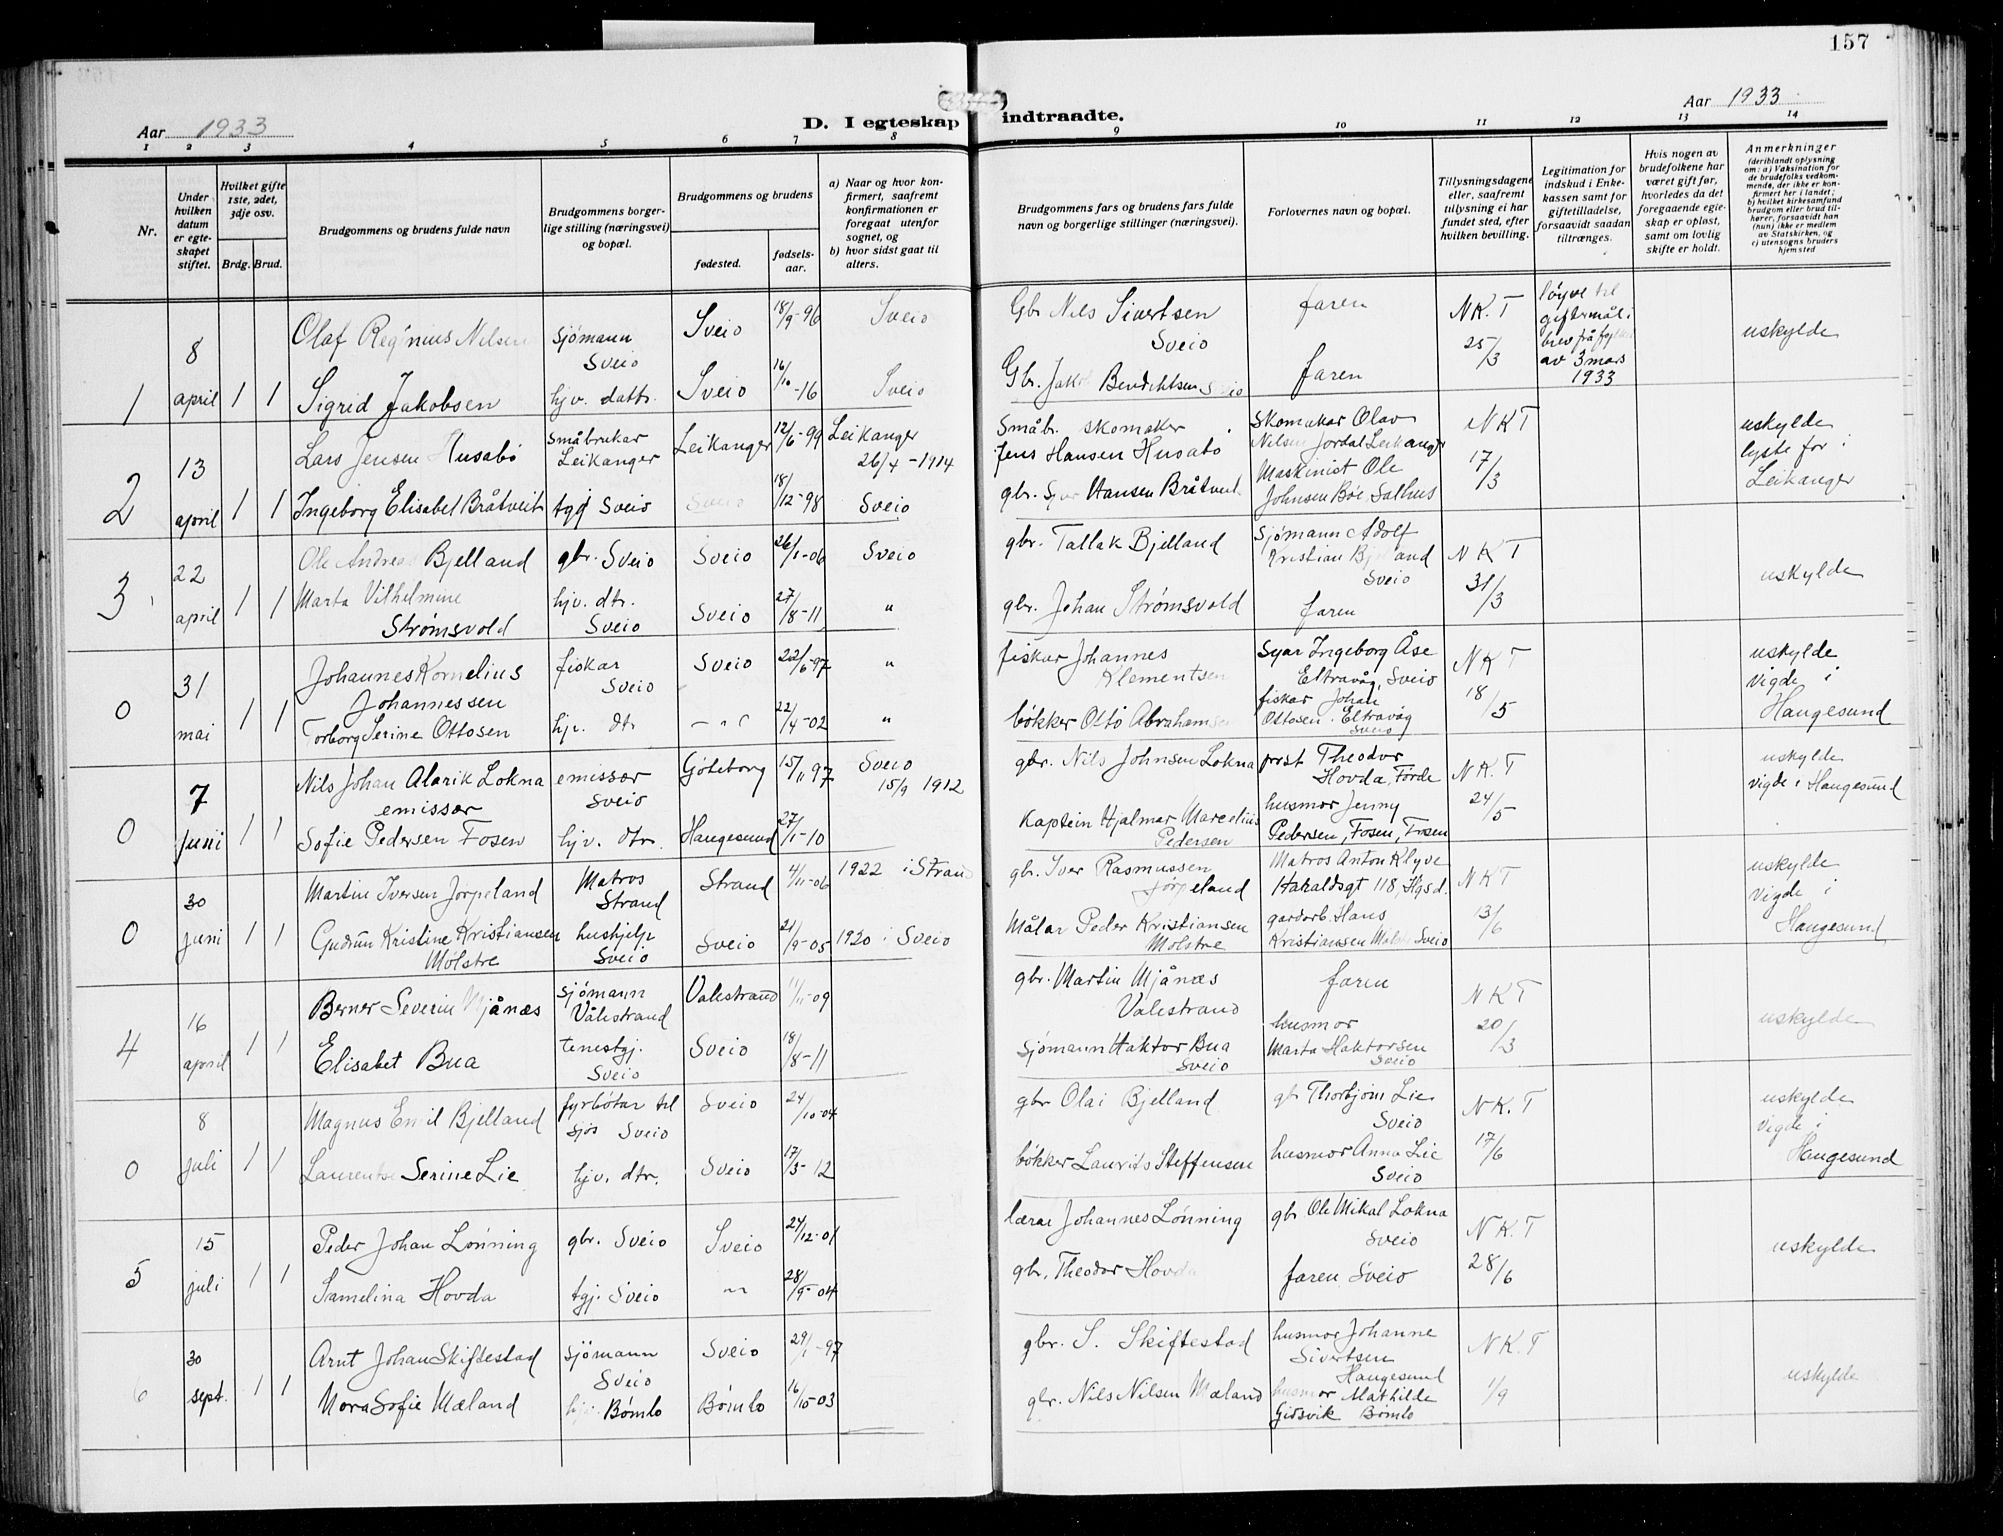 157
Aar 1933
D. I egteskap indtraadte.
Aar 1933
1 2 3 4 5 6 7 8 9 10 11 12 13 14
Nr.
Under hvilken datum er egteskapet stiftet.
Hvilket gifte 1ste, 2det, 3dje osv.
Brdg. Brud.
Brudgommens og brudens fulde navn
Brudgommens borgerlige stilling (næringsvei) og bopæl.
Brudgommens og brudens
fødested.
fødselsaar.
a) Naar og hvor konfirmert, saafremt konfirmationen er foregaat utenfor sognet, og
b) hvor sidst gaat til alters.
Brudgommens fars og brudens fars fulde navn og borgerlige stillinger (næringsvei).
Forlovernes navn og bopæl.
Tillysningsdagene eller, saafremt tillysning ei har fundet sted, efter hvilken bevilling.
Legitimation for indskud i Enkekassen samt for giftetilladelse, forsaavidt saadan tiltrænges.
Hvis nogen av brudefolkene har været gift før, hvorledes da det foregaaende egteskap er opløst, samt om lovlig skifte er holdt.
Anmerkninger
(deriblandt oplysning om: a) Vaksination for de brudefolks vedkommende, der ikke er konfirmert her i landet; b) hvilket kirkesamfund brudgom eller brud tilhører, forsaavidt han (hun) ikke er medlem av Statskirken, og c) utensogns bruders hjemsted
1 8 april 1 1
Olaf Regnius Nilsen sjómann Sveio Sveio 18/9-96 Sveio Gbr Nils Sivertsen Sveio faren N.K.T 25/3 løyve til giftermål i brev frå fylk av 3 mars 1933 uskylde
Sigrid Jakobsen hjv. dattr. Sveio 16/10-16 Sveio Gbr. Jak Bendiktsen Sveio faren
2 13 april 1 1
Lars Jensen Husabö småbrukar Leikanger Leikanger 12/6-99 Leikanger 26/4-1914 Småbr. skomaker Jens Hansen Husabö Skomakar Olav Nilsen Jordal Leikanger NKT 17/3 uskylde lyste for i Leikanger
Ingeborg Elisabet Bråtveit tgj Sveio Sveio 18/12-98 Sveio gbr. Hansen Bråtveit Maskinist Ole Johnsen Böe Salhus
3 22 april 1 1
Ole Andreas Bjelland gbr. Sveio Sveio 26/1-06 Sveio gbr. Tallak Bjelland Sjømann Adolf Kristian Bjelland Sveio NKT 31/3 uskylde
Marta Vilhelmine Strømsvold hjv. dtr. Sveio Sveio 27/8-11 " gbr. Johan Strømsvold faren
0 31 mai 1 1
Johannes Kornelius Johannessen fiskar Sveio Sveio 22/6-97 " fiskar Johannes Klementsen Syar Ingeborg Åse Eltravåg, Sveio NKT 18/5 uskylde vigde i Haugesund
Torborg Serine Ottosen hjv. dtr - " - 22/4-02 " bökker Otto Abrahamsen fiskar Johan Ottosen. Eltravåg Sveio
0 7 juni 1 1
Nils Johan Alarik Lokna emissær emissær Sveio Göteborg 15/11 97 Sveio 15/9 1912 gbr. Nils Johnsen Lokna prest Theodor Hovda, Förde N.K.T 24/5 uskylde vigde i Haugesund
Sofie Pedersen Fosen hjv. dtr. Haugesund 27/1-10 Kaptein Hjalmar Marcelius Pedersen husmor Jenny Pedersen, Fosen, Fosen
0 30 juni 1 1
Martin Iversen Jørpeland Matros Strand Strand 4/11-06 1922 i Strand gbr. Iver Rasmussen Jørpeland Matros Anton Klyve Haraldsgt 118, Hgsd. NKT 13/6 uskylde Vigde i Haugesund
Gudrun Kristine Kristiansen Mölstre hushjelp Sveio Sveio 21/9-05 1920 i Sveio Målar Peder Kristiansen Mölstre gardarb. Hans Kristiansen Mølstre Sveio
4 16 april 1 1
Berner Severin Mjånæs sjómann Vålestrand Valestrand 11/11-09 gbr. Martin Mjånæs Valestrand faren NKT 20/3 uskylde
Elisabet Bua tenestgj. Sveio Sveio 18/8-11 Sjómann Haktor Bua Sveio husmor Marta Haktorsen Sveio
0 8 juli 1 1
Magnus Emil Bjelland fyrbötar til sjós Sveio Sveio 24/10-04 gbr Olai Bjelland gb Thorbjörn Lie Sveio NK.T 17/6 uskylde vigde i Haugesund
Laurentse Serine Lie hjv. dtr. Sveio 17/3-12 bökker Laurits Steffensen husmor Anna Lie Sveio
5 15 juli 1 1
Peder Johan Lønning gbr. Sveio Sveio 24/12-01 lærar Johannes Lønning gbr Ole Mikal Lokna Sveio N.K.T 28/6 uskylde
Samelina Hovda tgj. Sveio - " - 28/9-04 gbr. Theodor Hovda faren Sveio
6 30 sept. 1 1
Arnt Johan Skiftestad sjómann Sveio Sveio 29/1-97 gbr. S. Skiftestad husmor Johanne Sivertsen Haugesund N.K.T 1/9 uskylde
Nora Sofie Mæland Bømlo Bømlo 16/10-03 gbr. Nils Nilsen Mæland husmor Mathilde Gidsvik Bømlo